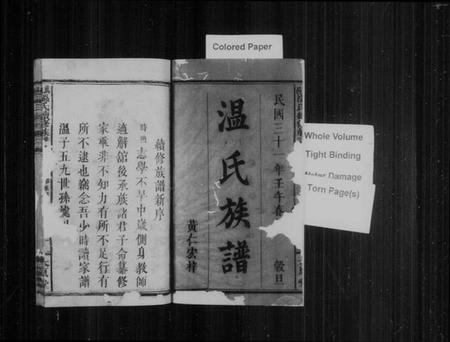 Colored Paper
Whole Volume
Tight Binding
Damage
Torn Page(s)
民國三十一年壬午春
穀旦
温氏族譜
黃仁宏梓
續修族譜新序
時 志學不早中歲側身教師
適解舘後承族諸君子命纂修
家乘非不知力有所不足行有
所不逮也竊念吾少時讀家譜
溫子五九世孫